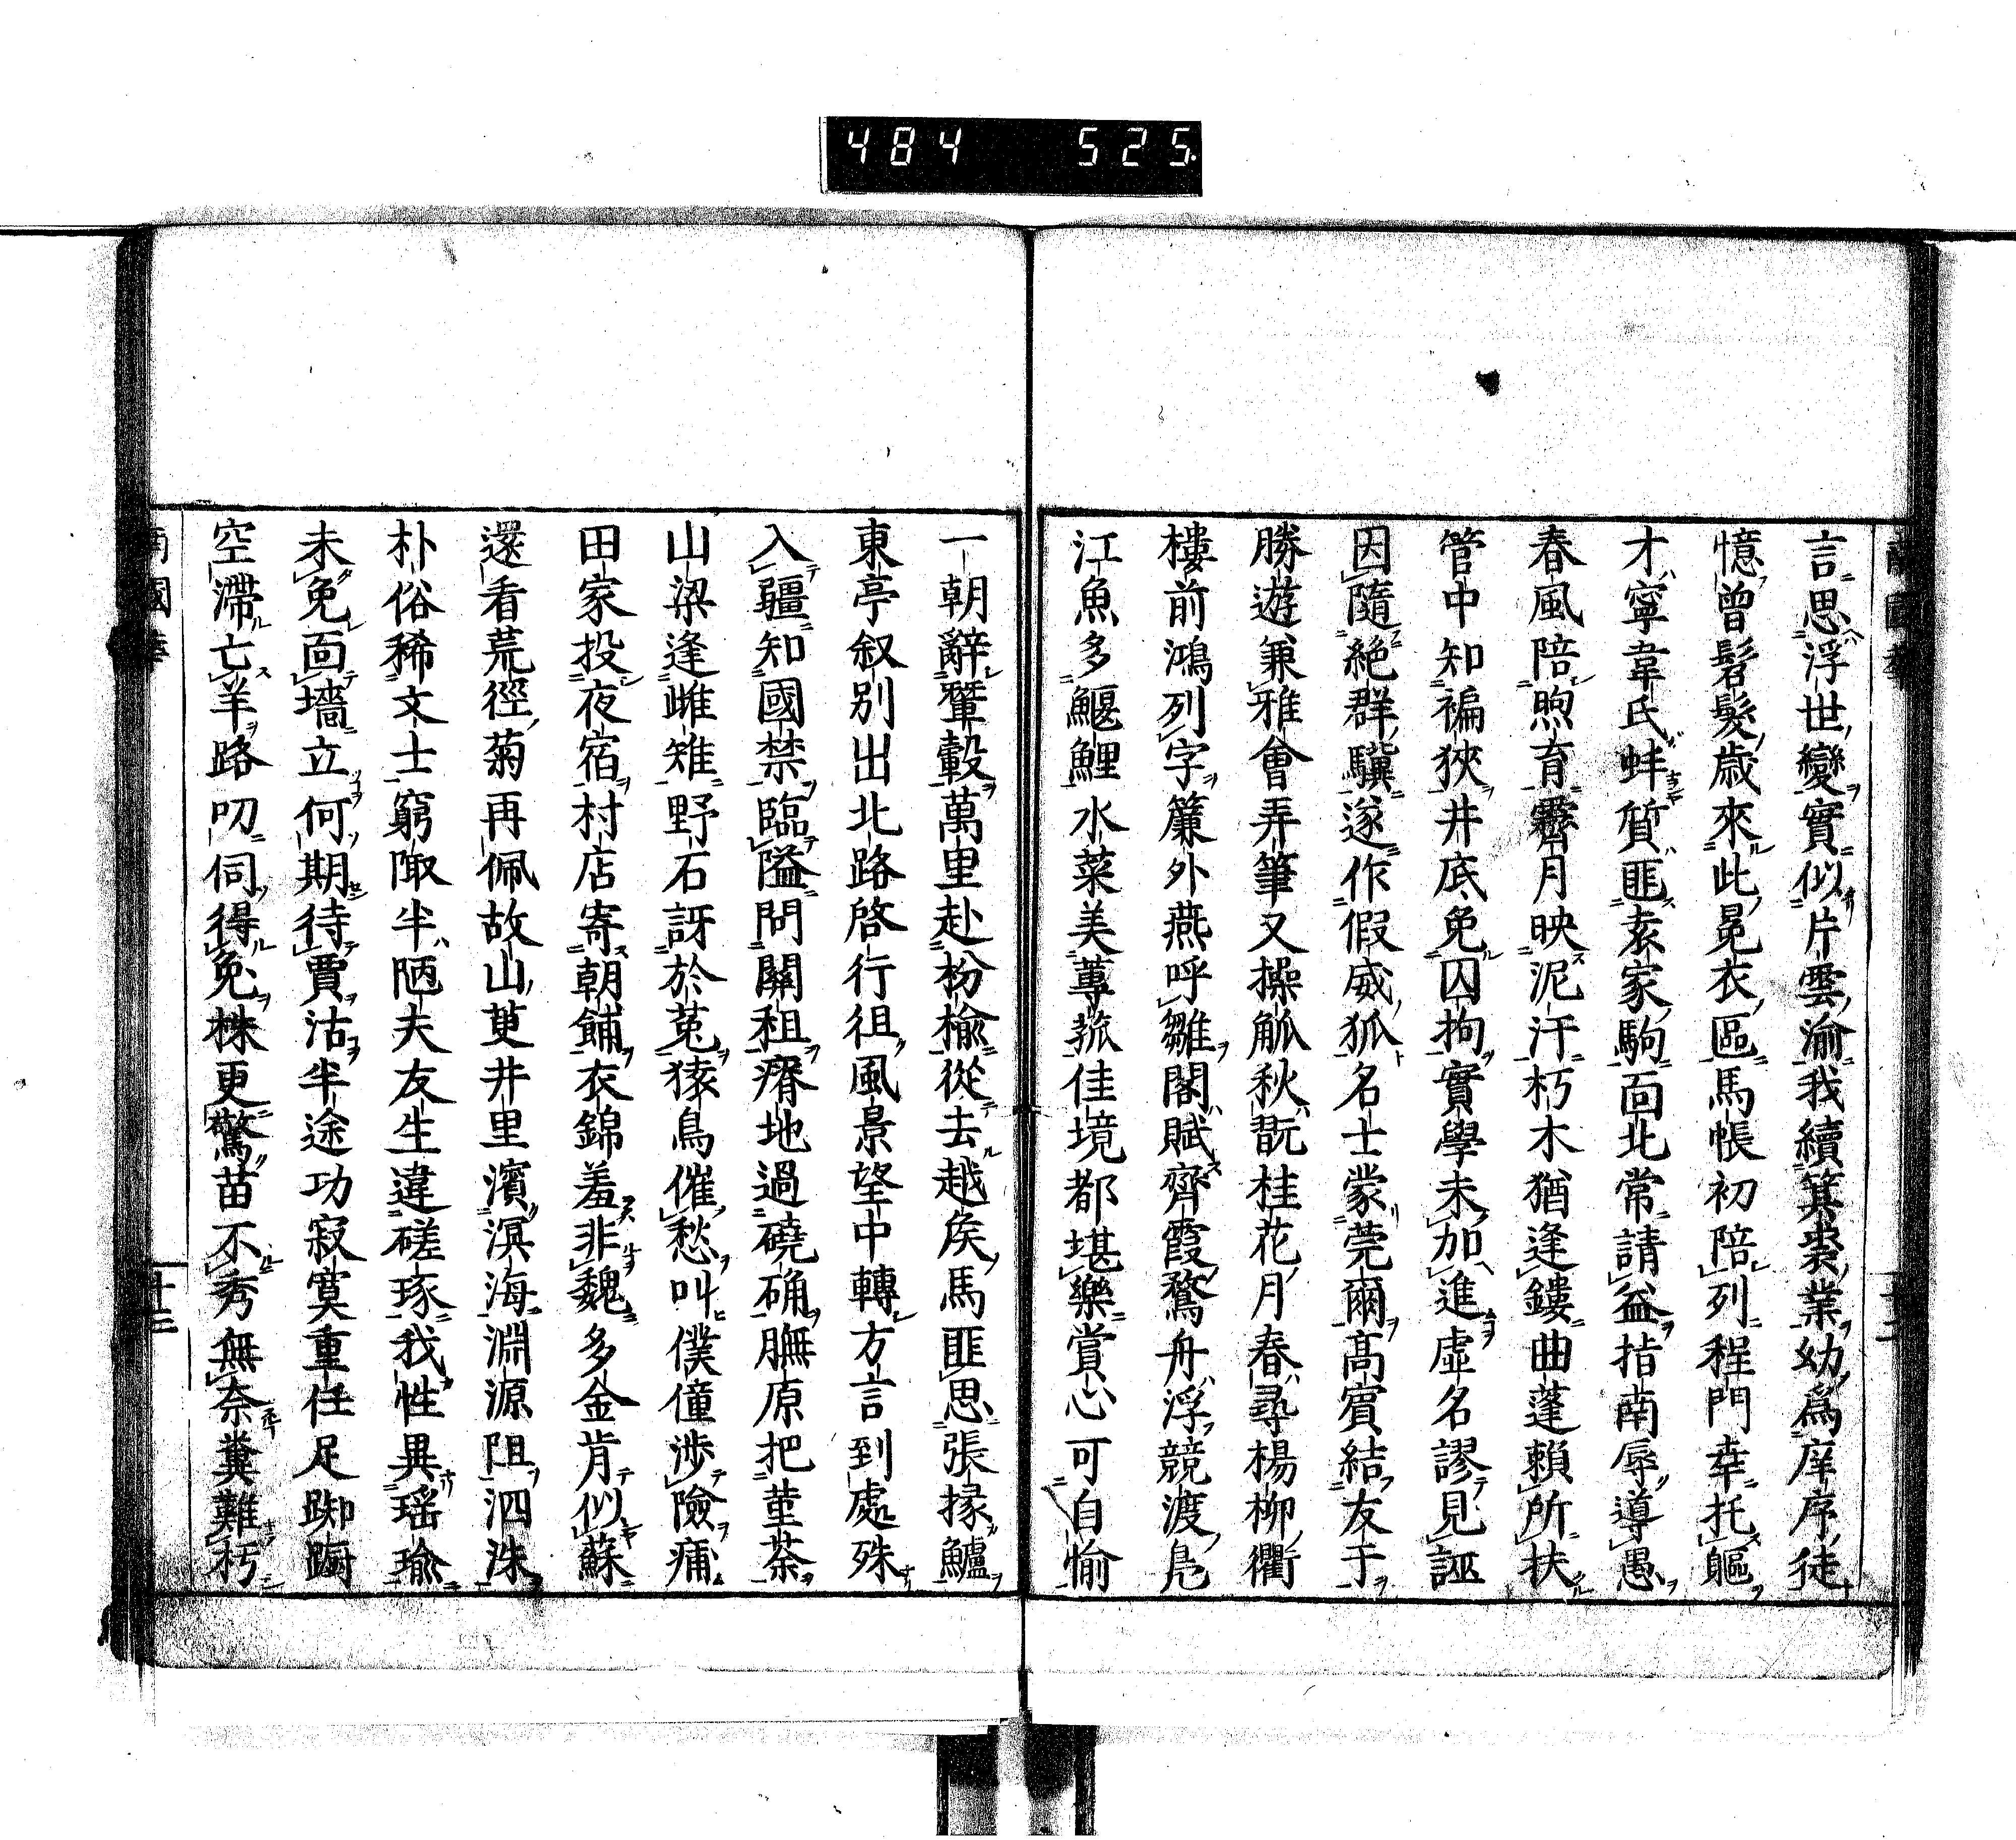 484 525
言思浮世變實似片雲渝我續箕裘業幼爲庠序徒
憶曾髫髮歳來此晃衣區馬帳初陪列程門幸托軀
才寧韋氏蚌質匪袁家駒面北常請益指南辱導愚
春風陪煦育霽月映泥汙朽木猶逢鏤曲蓬頼所扶
管中知褊狹井底免囚拘實學未加進虛名謬見誣
因隨絶群驥遂作假威狐名士蒙莞爾高賓結友于
勝遊兼雅會弄筆又操觚秋翫桂花月春尋楊柳衢
樓前鴻列字簾外燕呼雛閣賦齊霞鶩舟浮競渡鳧
江魚多鰋鯉水菜美蓴菰佳境都堪樂賞心可自愉
一朝辭輦轂萬里赴枌楡從去越矦馬匪思張掾鱸
東亭叙別出北路啓行徂風景望中轉方言到處殊
入疆知國禁臨隘問關租瘠地過磽确膴原把菫荼
山梁逢雌雉野石訝於菟猿鳥催愁叫僕僮渉險痡
田家投夜宿村店寄朝餔衣錦羞非魏多金肯似蘇
還看荒徑菊再佩故山萸井里濱溟海淵源阻泗洙
朴俗稀文士窮陬半陋夫友生違磋琢我性異瑶瑜
未免面墻立何期待賈沽半途功寂寞重任足踟蹰
空滯亡羊路叨伺得兔株更驚苗不秀無奈糞難朽
南國華
十三